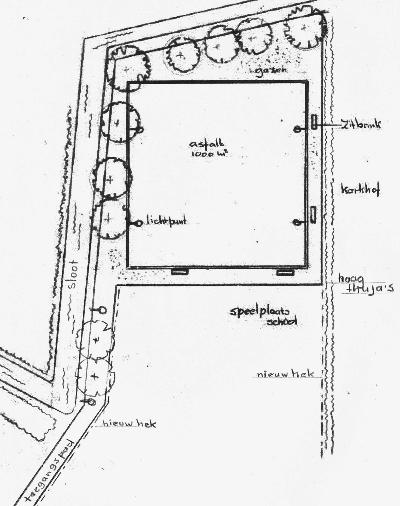 gazon
Zitbank
asfalt
1000 m²
kerkhof
lichtpunt
sloot
haag
thuja's
speelplaats
school
nieuw hek
nieuw hek
toegangspad